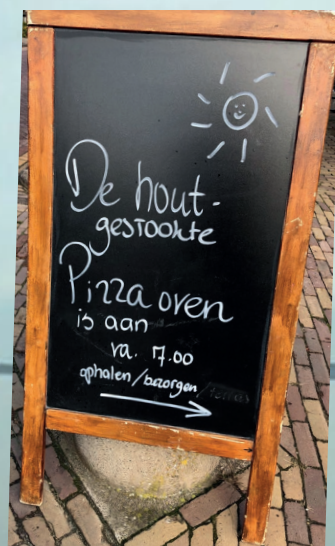 De hout-
gestookte
Pizza oven
is aan
va. 17.00
ophalen/bezorgen/terras